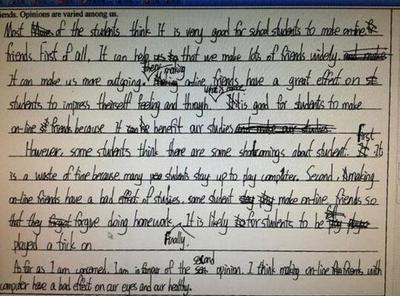 iends. Opinions are varied among us.
Most of the students think It is very good for school students to make on-line
friends. First of all, It can help us that we make lots of friends widely.
It can make us more outgoing. Then making on-line friends have a great effect on
students to impress theirself feeling and though. What's more It is good for students to make
on-line friends because It can benefit our studies
However, some students think there are some shortcomings about student. First It
is a waste of time because many students stay up to play computer. Second, making
on-line friends have a bad effect of studies, some student make on-line friends so
that they forgue doing homework. It is likely for students to be
played a trick on. Finally
As far as I am concerned, I am in favor of the second opinion. I think making on-line friends with
computer have a bad effect on our eyes and our healthy.